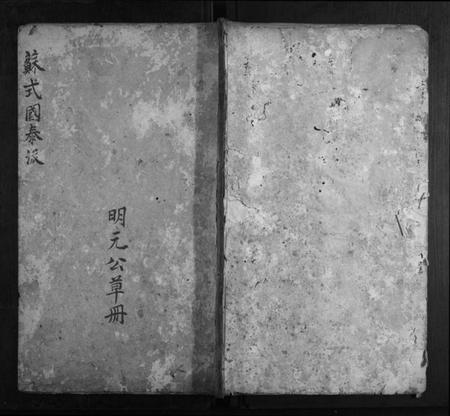 明元公草冊
蘇式國泰派